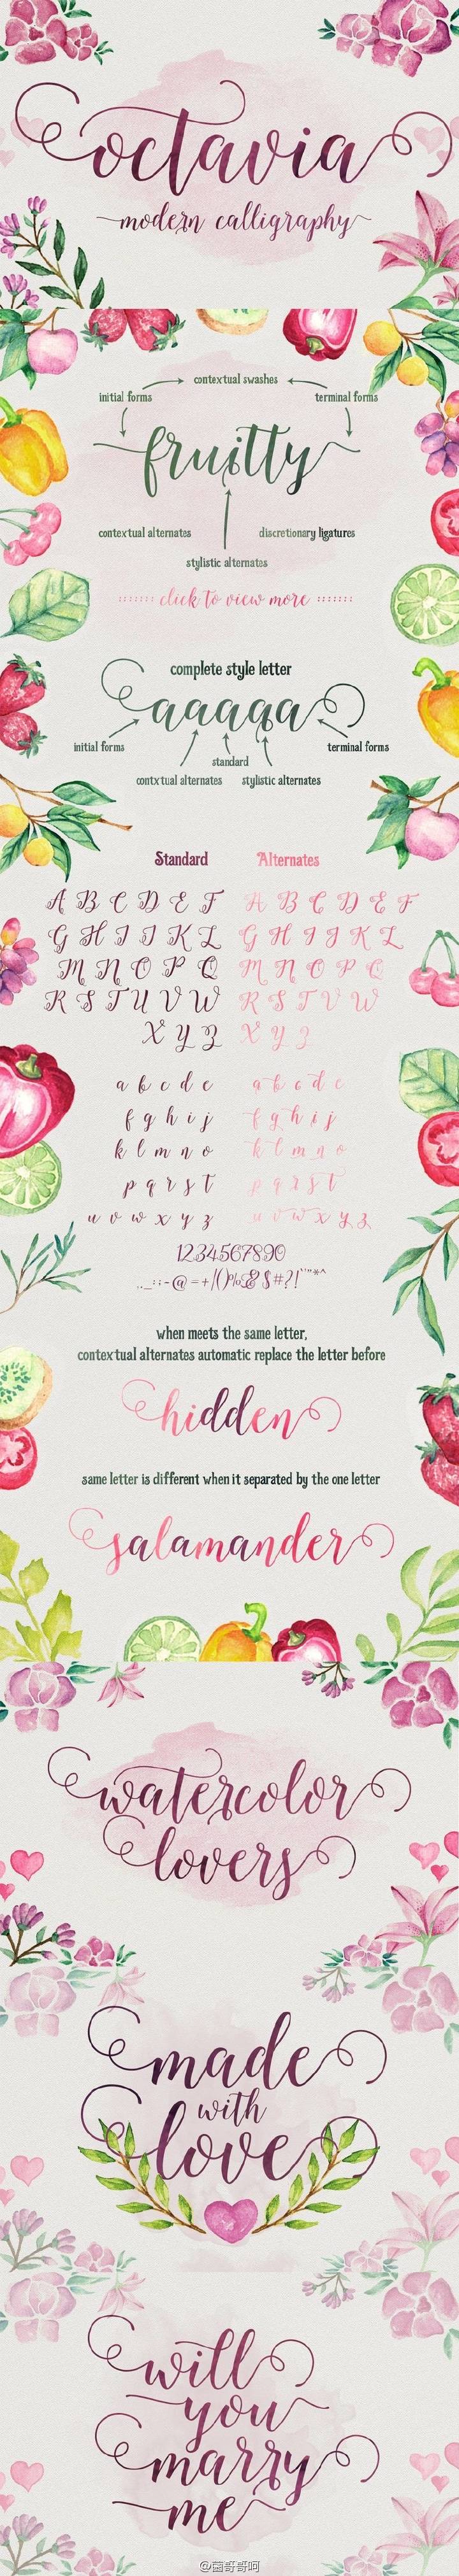 octavia
modern calligraphy
contextual swashes
initial forms
terminal forms
fruitty
contextual alternates
discretionary ligatures
stylistic alternates
:::::: click to view more ::::::
complete style letter
aaaaa
initial forms
terminal forms
standard
contxtual alternates
stylistic alternates
Standard
Alternates
A B C D E F
A B C D E F
G H I J K L
G H I J K L
M N O P Q
M N O P Q
R S T U V W
R S T U V W
X Y Z
X Y Z
a b c d e
a b c d e
f g h i j
f g h i j
k l m n o
k l m n o
p q r s t
p q r s t
u v w x y z
u v w x y z
1234567890
when meets the same letter,
contextual alternates automatic replace the letter before
hidden
same letter is different when it separated by the one letter
salamander
watercolor
lovers
made
with
love
will
you
marry
me
@菌哥哥呵